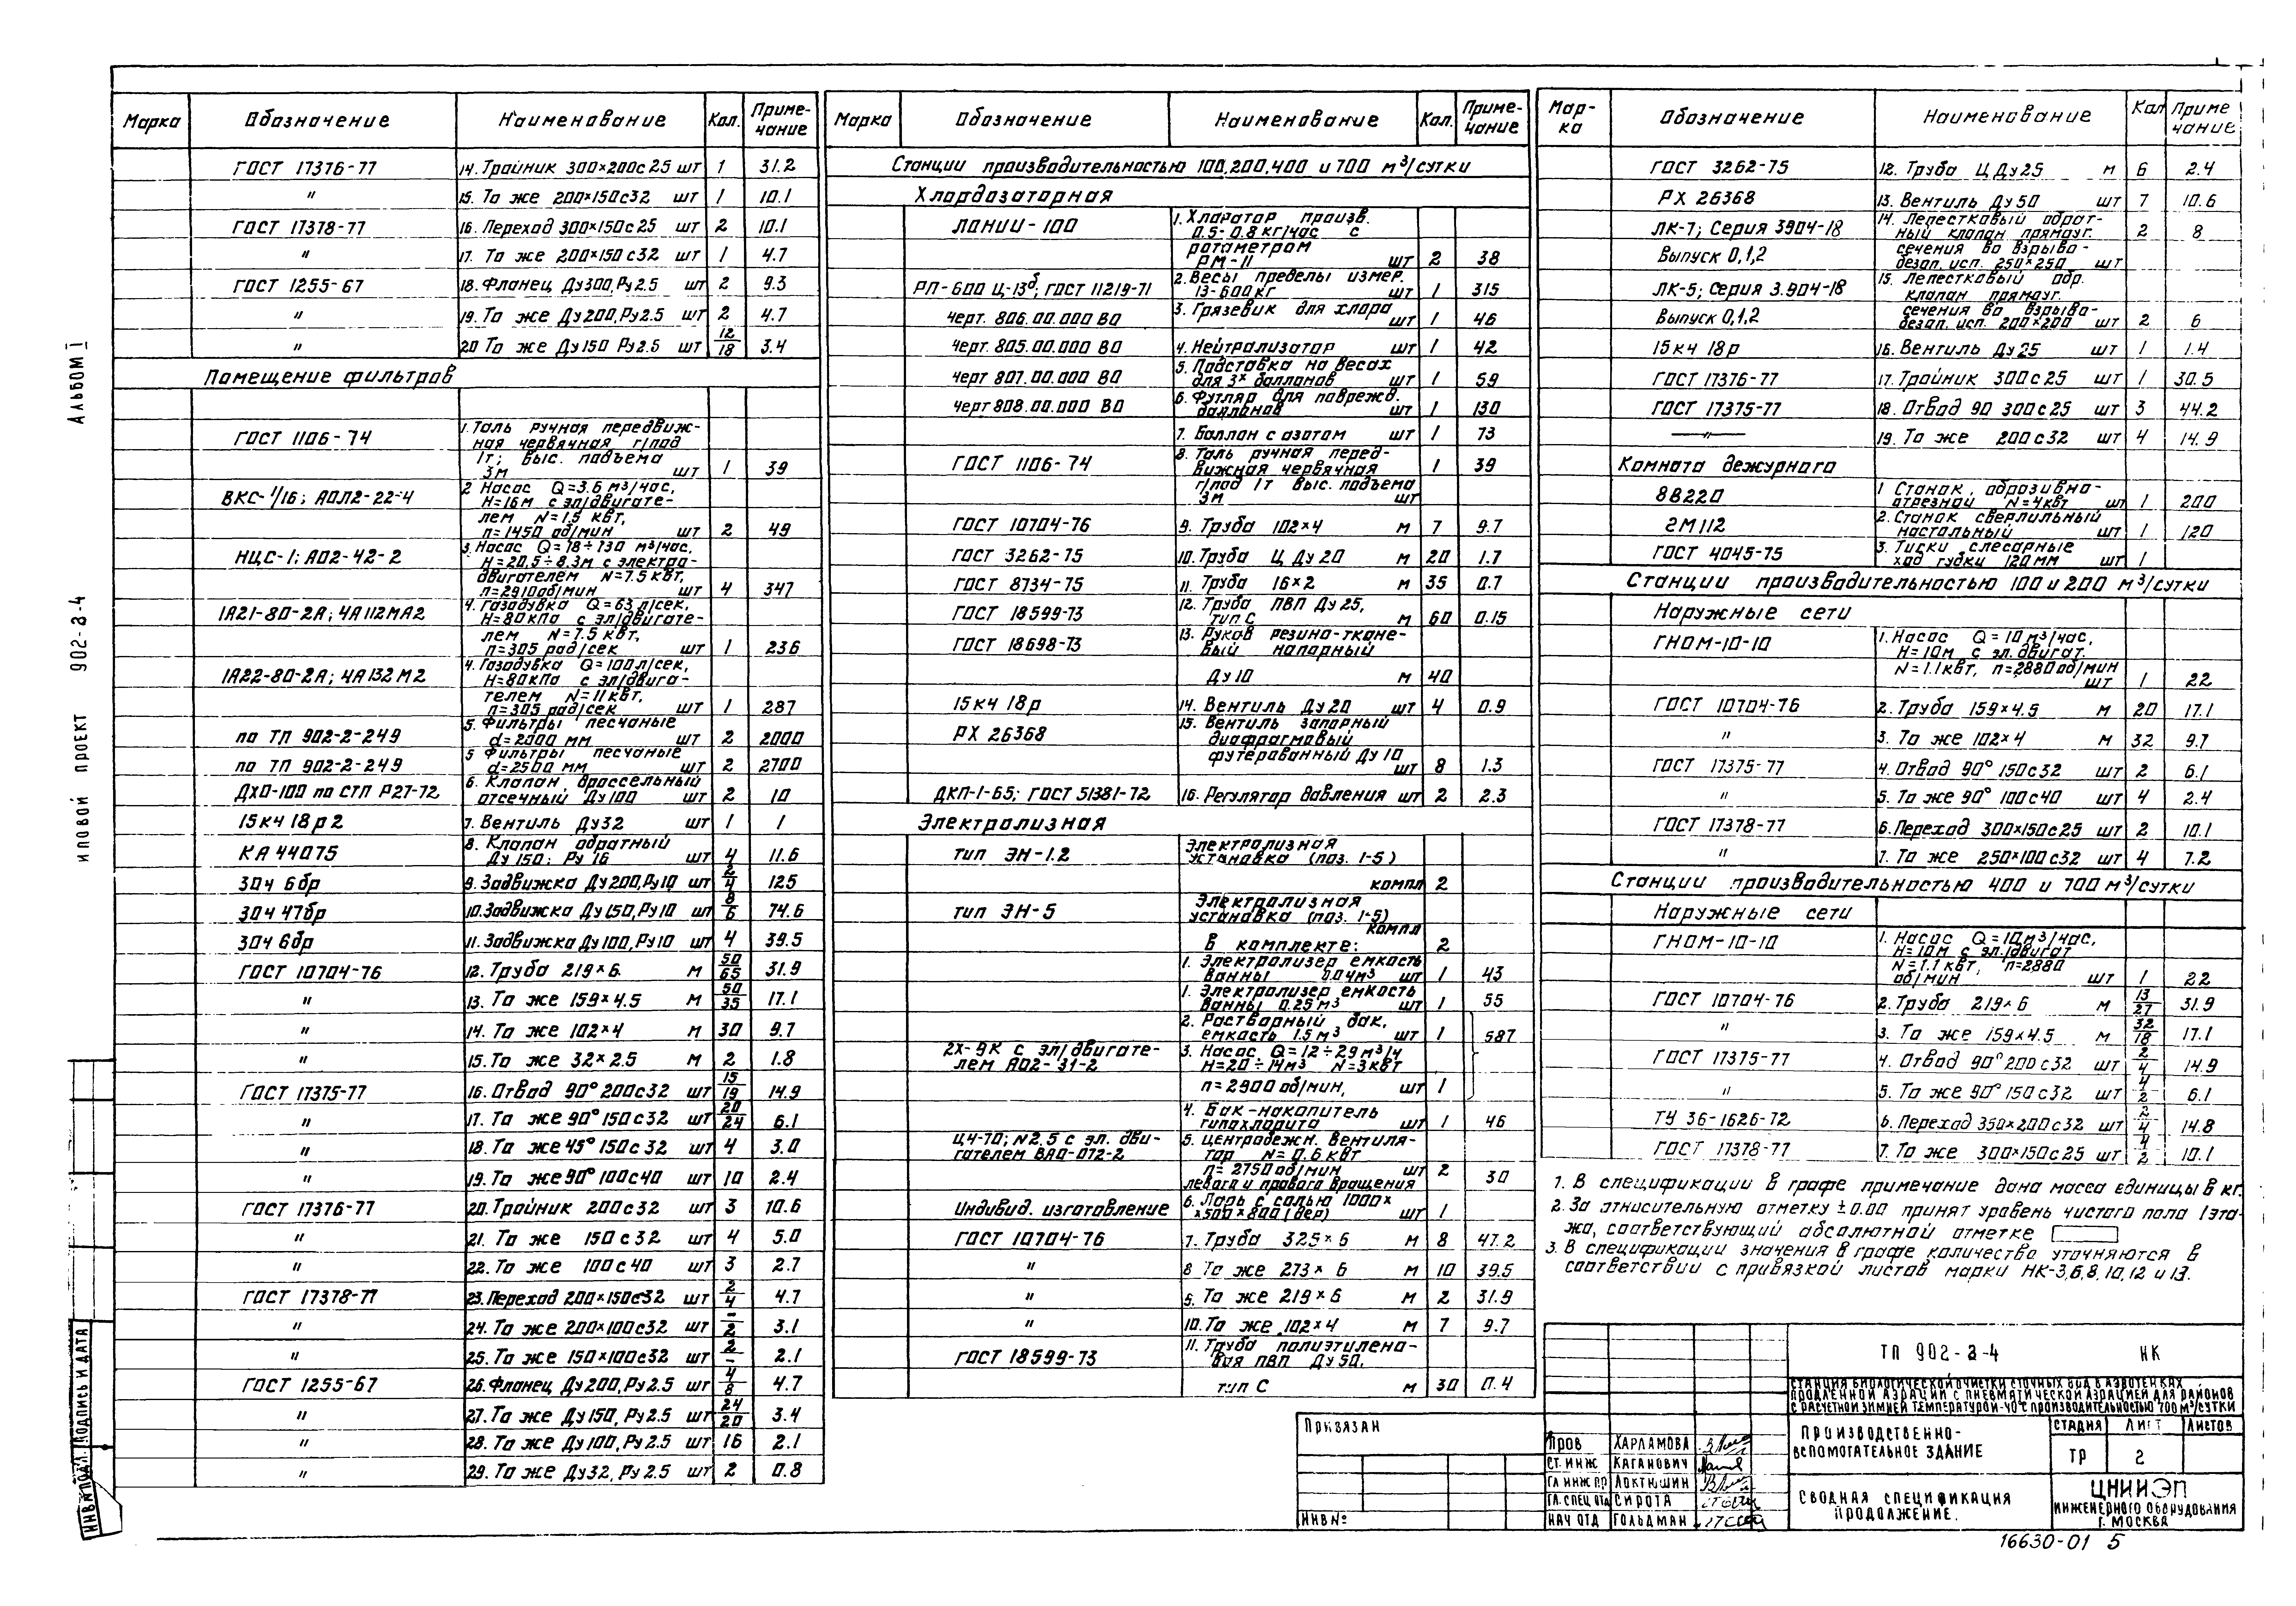 АЛЬБОМ I
ИПОВОЙ ПРОЕКТ 902-3-4
ПОДПИСЬ И ДАТА
Марка Обозначение Наименование Кол. Приме-чание
ГОСТ 17376-77 14. Тройник 300×200с25 шт 1 31.2
" 15. То же 200×150с32 шт 1 10.1
ГОСТ 17378-77 16. Переход 300×150с25 шт 2 10.1
" 17. То же 200×150с32 шт 1 4.7
ГОСТ 1255-67 18. Фланец Ду300, Ру2.5 шт 2 9.3
" 19. То же Ду200, Ру2.5 шт 2 4.7
" 20 То же Ду150 Ру2.5 шт 12/18 3.4
Помещение фильтров
ГОСТ 1106-74 1. Таль ручная передвиж-
ная червячная г/под
1т; выс. подъема
3м шт 1 39
ВКС-1/16; АОЛ2-22-4 2 Насос Q=3.6 м³/час,
Н=16м с эл/двигате-
лем N=1.5 кВт,
n=1450 об/мин шт 2 49
НЦС-1; А02-42-2 3. Насос Q=78÷130 м³/час,
Н=20.5÷8.3м с электро-
двигателем N=7.5 кВт,
n=2910об/мин шт 4 347
1А21-80-2А; 4А112МА2 4. Газодувка Q=63 л/сек,
Н=80кПа с эл/двигате-
лем N=7.5 кВт,
n=305 рад/сек шт 1 236
1А22-80-2А; 4А132М2 4. Газодувка Q=100л/сек,
Н=80кПа с эл/двига-
телем N=11кВт,
n=305 рад/сек шт 1 287
по ТП 902-2-249 5. Фильтры песчаные
d=2000 мм шт 2 2000
по ТП 902-2-249 5 Фильтры песчаные
d=2500 мм шт 2 2700
ДХО-100 по СТП Р27-72 6. Клапан, дроссельный
отсечный Ду100 шт 2 10
15кч 18р2 7. Вентиль Ду32 шт 1 1
КА 44075 8. Клапан обратный
Ду 150; Ру 16 шт 4 11.6
30ч 6бр 9. Задвижка Ду200, Ру10 шт 2/4 125
30ч 47бр 10. Задвижка Ду150, Ру10 шт 8/6 74.6
30ч 6бр 11. Задвижка Ду100, Ру10 шт 4 39.5
ГОСТ 10704-76 12. Труба 219×6 м 50/65 31.9
" 13. То же 159×4.5 м 50/35 17.1
" 14. То же 102×4 м 30 9.7
" 15. То же 32×2.5 м 2 1.8
ГОСТ 17375-77 16. Отвод 90° 200с32 шт 15/19 14.9
" 17. То же 90° 150с32 шт 20/24 6.1
" 18. То же 45° 150с32 шт 4 3.0
" 19. То же 90° 100с40 шт 10 2.4
ГОСТ 17376-77 20. Тройник 200с32 шт 3 10.6
" 21. То же 150с32 шт 4 5.0
" 22. То же 100с40 шт 3 2.7
ГОСТ 17378-77 23. Переход 200×150с32 шт 2/4 4.7
" 24. То же 200×100с32 шт -/2 3.1
" 25. То же 150×100с32 шт 2/- 2.1
ГОСТ 1255-67 26. Фланец Ду200, Ру2.5 шт 4/8 4.7
" 27. То же Ду150, Ру2.5 шт 24/20 3.4
" 28. То же Ду100, Ру2.5 шт 16 2.1
" 29. То же Ду32, Ру2.5 шт 2 0.8
Марка Обозначение Наименование Кол. Приме-чание
Станции производительностью 100,200,400 и 700 м³/сутки
Хлордозаторная
ЛОНИИ-100 1. Хлоратор произв.
0.5-0.8 кг/час с
ротаметром
РМ-II шт 2 38
РП-600 Ц-13б; ГОСТ 11219-71 2. Весы пределы измер.
13-600кг шт 1 315
черт. 806.00.000 ВО 3. Грязевик для хлора
шт 1 46
черт. 805.00.000 ВО 4. Нейтрализатор шт 1 42
черт 807.00.000 ВО 5. Подставка на весах
для 3х баллонов шт 1 59
черт 808.00.000 ВО 6. Футляр для поврежд.
баллонов шт 1 130
7. Баллон с азотом шт 1 73
ГОСТ 1106-74 8. Таль ручная перед-
вижная червячная 1 39
г/под 1т выс. подъема
3м шт
ГОСТ 10704-76 9. Труба 102×4 м 7 9.7
ГОСТ 3262-75 10. Труба Ц Ду 20 м 20 1.7
ГОСТ 8734-75 11. Труба 16×2 м 35 0.7
ГОСТ 18599-73 12. Труба ПВП Ду25,
тип С м 60 0.15
ГОСТ 18698-73 13. Рукав резина-ткане-
вый напорный
Ду10 м 40
15кч 18р 14. Вентиль Ду20 шт 4 0.9
РХ 26368 15. Вентиль запорный
диафрагмовый
футерованный Ду 10
шт 8 1.3
ДКП-1-65; ГОСТ 51381-72 16. Регулятор давления шт 2 2.3
Электролизная
тип ЭН-1.2 Электролизная
установка (поз. 1-5)
компл 2
тип ЭН-5 Электролизная
установка (поз. 1-5)
компл
В комплекте: 2
1. Электролизер емкость
ванны 0.04м³ шт 1 43
1. Электролизер емкость
ванны 0.25м³ шт 1 55
2. Растворный бак,
емкость 1.5м³ шт 1 587
2Х-9К с эл/двигате-
лем А02-31-2 3. Насос Q=12÷29м³/ч
Н=20÷14м³ N=3кВт
n=2900об/мин, шт 1
4. Бак-накопитель
гипохлорита шт 1 46
Ц4-70; N2.5 с эл. дви-
гателем ВАО-072-2 5. Центробежн. вентиля-
тор N=0.6кВт
n=2750об/мин шт 2 30
левого и правого вращения
Индивид. изготовление 6. Ларь с солью 1000×
×500×800 (дер) шт 1
ГОСТ 10704-76 7. Труба 325×6 м 8 47.2
" 8 То же 273×6 м 10 39.5
" 9. То же 219×6 м 2 31.9
" 10. То же 102×4 м 7 9.7
ГОСТ 18599-73 11. Труба полиэтилено-
вая ПВП Ду50,
тип С м 30 0.4
Мар-ка Обозначение Наименование Кол Приме чание
ГОСТ 3262-75 12. Труба Ц Ду25 м 6 2.4
РХ 26368 13. Вентиль Ду50 шт 7 10.6
ЛК-7; Серия 3.904-18
Выпуск 0,1,2 14. Лепестковый обрат-
ный клапан прямоуг. 2 8
сечения во взрыво-
безоп. исп. 250×250 шт
ЛК-5; Серия 3.904-18
Выпуск 0,1,2 15. Лепестковый обр.
клапан прямоуг.
сечения во взрыво-
безоп. исп. 200×200 шт 2 6
15кч 18р 16. Вентиль Ду25 шт 1 1.4
ГОСТ 17376-77 17. Тройник 300с25 шт 1 30.5
ГОСТ 17375-77 18. Отвод 90 300с25 шт 3 44.2
" 19. То же 200с32 шт 4 14.9
Комната дежурного
8В220 1 Станок, абразивно-
отрезной N=4кВт шт 1 200
2М112 2. Станок сверлильный
настольный шт 1 120
ГОСТ 4045-75 3. Тиски слесарные
ход губки 120мм шт 1
Станции производительностью 100 и 200 м³/сутки
Наружные сети
ГНОМ-10-10 1. Насос Q=10м³/час,
Н=10м с эл.двигат.
N=1.1кВт, n=2880об/мин
шт 1 22
ГОСТ 10704-76 2. Труба 159×4.5 м 20 17.1
" 3. То же 102×4 м 32 9.7
ГОСТ 17375-77 4. Отвод 90° 150с32 шт 2 6.1
" 5. То же 90° 100с40 шт 4 2.4
ГОСТ 17378-77 6. Переход 300×150с25 шт 2 10.1
" 7. То же 250×100с32 шт 4 7.2
Станции производительностью 400 и 700м³/сутки
Наружные сети
ГНОМ-10-10 1. Насос Q=10м³/час,
Н=10м с эл/двигат
N=1.1кВт, n=2880
об/мин шт 1 22
ГОСТ 10704-76 2. Труба 219×6 м 13/27 31.9
" 3. То же 159×4.5 м 32/18 17.1
ГОСТ 17375-77 4. Отвод 90° 200с32 шт 2/4 14.9
" 5. То же 90° 150с32 шт 4/2 6.1
ТУ 36-1626-72 6. Переход 350×200с32 шт 2/4 14.8
ГОСТ 17378-77 7. То же 300×150с25 шт 4/2 10.1
1. В спецификации в графе примечание дана масса единицы в кг.
2. За относительную отметку ±0.00 принят уровень чистого пола 1 эта-
жа, соответствующий абсолютной отметке
3. В спецификации значения в графе количества уточняются в
соответствии с привязкой листов марки НК-3,6,8,10,12 и 13.
ТП 902-3-4 НК
СТАНЦИЯ БИОЛОГИЧЕСКОЙ ОЧИСТКИ СТОЧНЫХ ВОД В АЭРОТЕНКАХ
ПРОДЛЕННОЙ АЭРАЦИИ С ПНЕВМАТИЧЕСКОЙ АЭРАЦИЕЙ ДЛЯ РАЙОНОВ
С РАСЧЕТНОЙ ЗИМНЕЙ ТЕМПЕРАТУРОЙ -40°С ПРОИЗВОДИТЕЛЬНОСТЬЮ 700 М³/СУТКИ
ПРИВЯЗАН
ИНВ №
ПРОВ ХАРЛАМОВА
СТ. ИНЖ КАГАНОВИЧ
ГЛ ИНЖ ПР ЛОКТЮШИН
ГЛ. СПЕЦ ОТД СИРОТА
НАЧ ОТД ГОЛЬДМАН
ПРОИЗВОДСТВЕННО-
ВСПОМОГАТЕЛЬНОЕ ЗДАНИЕ
СТАДИЯ ЛИСТ ЛИСТОВ
ТР 2
СВОДНАЯ СПЕЦИФИКАЦИЯ
ПРОДОЛЖЕНИЕ.
ЦНИИЭП
ИНЖЕНЕРНОГО ОБОРУДОВАНИЯ
Г. МОСКВА
16630-01 5